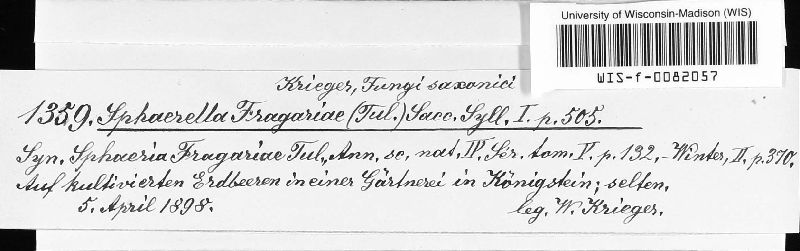 University of Wisconsin-Madison (WIS)
WIS-f-0082057
Krieger, Fungi saxonici
1359. Sphaerella Fragariae (Tul.) Sacc. Syll. I. p. 505.
Syn. Sphaeria Fragariae Tul., Ann. sc. nat. IV. Sér. tom. V. p. 132, - Winter, II. p. 370.
Auf kultivierten Erdbeeren in einer Gärtnerei in Königstein; selten.
5. April 1898. leg. W. Krieger.